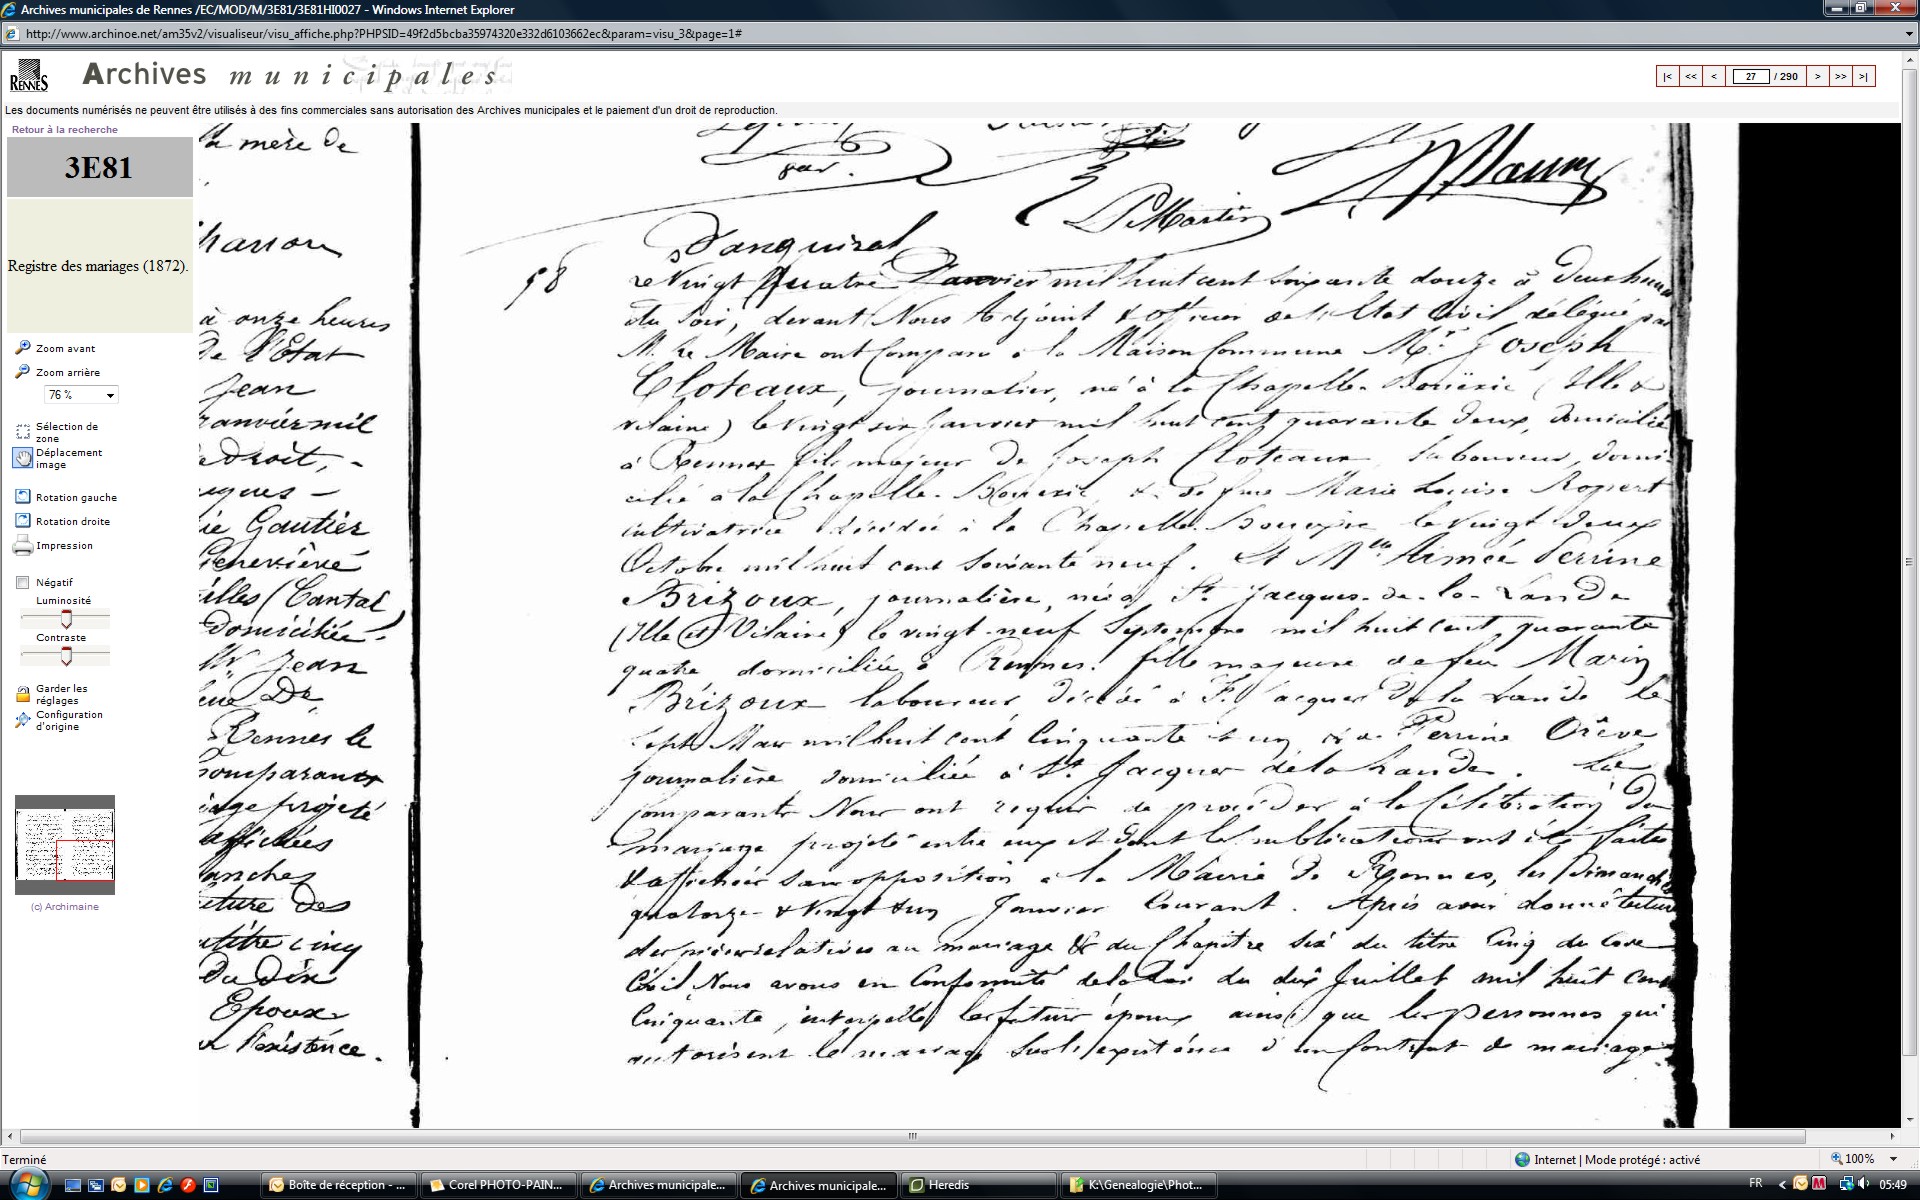 Archives municipales de Rennes /EC/MOD/M/3E81/3E81HI0027 - Windows Internet Explorer
http://www.archinoe.net/am35v2/visualiseur/visu_affiche.php?PHPSID=49f2d5bcba35974320e332d6103662ec&param=visu_3&page=1#
RENNES Archives municipales
|< << < 27 / 290 > >> >|
Les documents numérisés ne peuvent être utilisés à des fins commerciales sans autorisation des Archives municipales et le paiement d'un droit de reproduction.
Retour à la recherche
3E81
Registre des mariages (1872).
Zoom avant
Zoom arrière
76 %
Sélection de
zone
Déplacement
image
Rotation gauche
Rotation droite
Impression
Négatif
Luminosité
Contraste
Garder les
réglages
Configuration
d'origine
(c) Archimaine
la mère de
à onze heures
de l'Etat
Jean
Janvier mil
droit, -
Gautier
Geneviève
(Cantal)
domiciliée
Jean
De
Rennes le
comparants
projeté
affichées
des
titre cinq
du dix
Epoux
l'existence.
P Martin
58
Le Vingt Quatre Janvier mil huit cent soixante douze à deux heures
du soir, devant Nous Adjoint & officier de l'Etat Civil délégué par
M. le Maire ont Comparu à la Maison Commune Mr. Joseph
Cloteaux, journalier, né à la Chapelle-Bouëxic (Ille &
vilaine) le vingt six Janvier mil huit cent quarante deux, domicilié
à Rennes fils majeur de Joseph Cloteaux laboureur, domi-
cilié à la Chapelle-Bouexic, & de feue Marie Louise Ropert
cultivatrice décédée à la Chapelle-Bouexic le vingt deux
Octobre mil huit cent soixante neuf. Et Mlle Aimée Perrine
Brizoux, journalière, née à St Jacques-de-la-Lande
(Ille et Vilaine) le vingt-neuf Septembre mil huit cent quarante
quatre domiciliée à Rennes. fille majeure de feu Marin
Brizoux laboureur décédé à St Jacques de la Lande le
sept Mars mil huit cent Cinquante & un & de Perrine Orêve
journalière domiciliée à St Jacques de la Lande. Les
comparants Nous ont requis de procéder à la Célébration du
mariage projeté entre eux et dont les publications ont été faites
& affichées sans opposition à la Mairie de Rennes, les Dimanches
quatorze & Vingt & un Janvier Courant. Après avoir donné lecture
des pièces relatives au mariage & du Chapitre six du titre Cinq du Code
Civil, Nous avons en Conformité de la Loi du dix Juillet mil huit cent
Cinquante, interpellé les futurs époux ainsi que les personnes qui
autorisent le mariage sur l'existence d'un Contrat de mariage
Terminé
Internet | Mode protégé : activé
100%
Boîte de réception - ...
Corel PHOTO-PAIN...
Archives municipale...
Archives municipale...
Heredis
K:\Genealogie\Phot...
FR
05:49